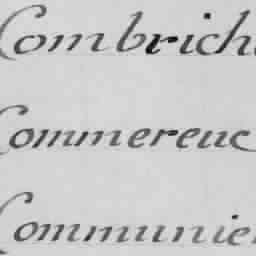 Combrich
Commereuc
Communie